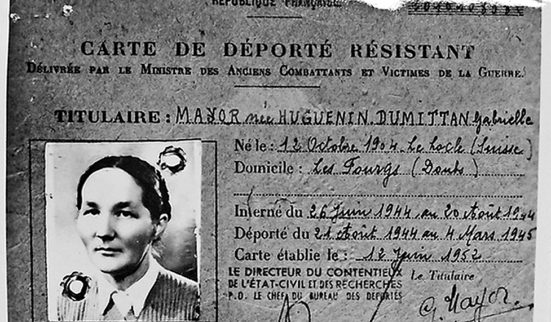 RÉPUBLIQUE FRANÇAISE
CARTE DE DÉPORTÉ RÉSISTANT
DÉLIVRÉE PAR LE MINISTRE DES ANCIENS COMBATTANTS ET VICTIMES DE LA GUERRE.
TITULAIRE : MAYOR née HUGUENIN. DUMITTAN Gabrielle
Né le : 12 Octobre 1904. Le Locle (Suisse)
Domicile : Les Fourgs (Doubs)
Interné du 26 Juin 1944 au 20 Août 1944
Déporté du 21 Août 1944 au 4 Mars 1945
Carte établie le : 12 Juin 1952
LE DIRECTEUR DU CONTENTIEUX
DE L'ÉTAT-CIVIL ET DES RECHERCHES
P.O. LE CHEF DU BUREAU DES DÉPORTÉS
Le Titulaire
G. Mayor.